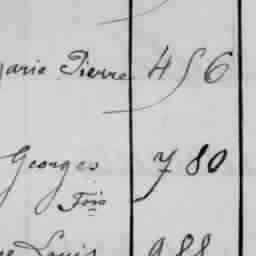 Marie Pierre 456
Georges 780
Fois
Louis 988